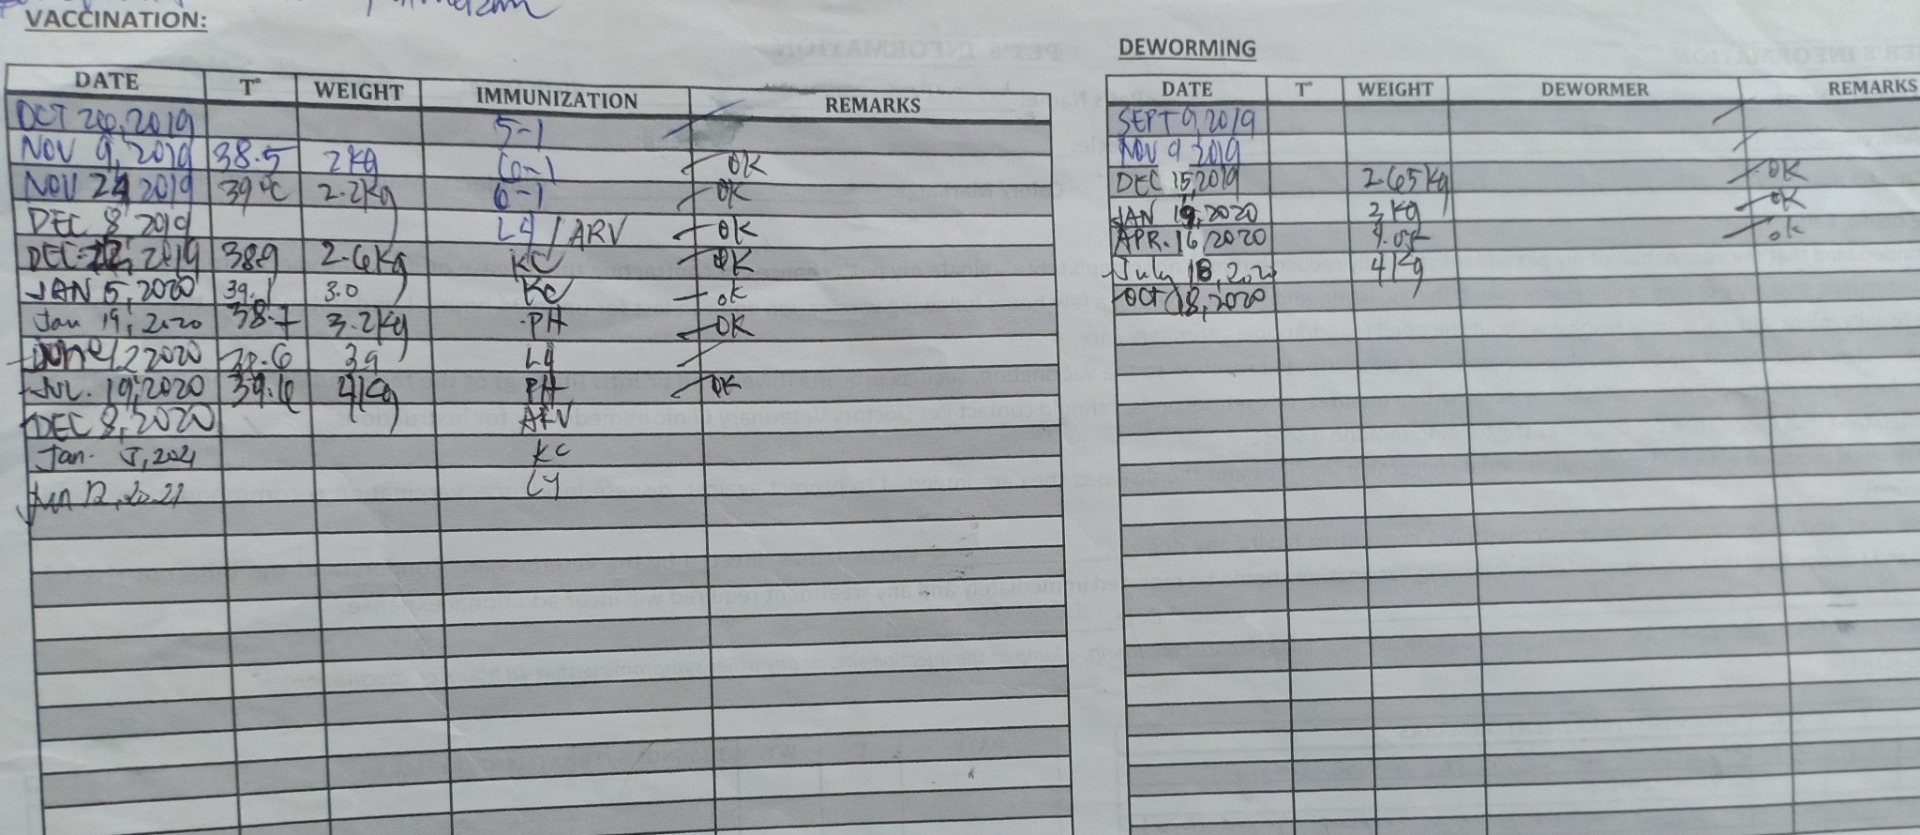 VACCINATION:
DATE T° WEIGHT IMMUNIZATION REMARKS
OCT 2019 5-1
NOV 9, 2019 38.5 2kg 6-1 OK
NOV 24 2019 39°C 2.2kg 6-1 OK
DEC 8, 2019 L4 / ARV OK
DEC 2019 38.9 2.6kg KC OK
JAN 5, 2020 39.1 3.0 KC OK
Jan 19, 2020 38.7 3.2kg PH OK
June 12 2020 L4
JUL. 19, 2020 39.6 4kg PH OK
DEC 8, 2020 ARV
Jan. 5, 2021 KC
Jun 12, 2021 L4
DEWORMING
DATE T° WEIGHT DEWORMER REMARKS
SEPT 9, 2019
NOV 9 2019
DEC 15, 2019 2.65kg OK
JAN 2020 3kg OK
APR. 16, 2020 ok
July 18, 2020 4kg
OCT 18, 2020